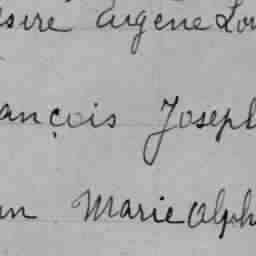 sire Eugene Lou
ançois Joseph
an Marie Alph